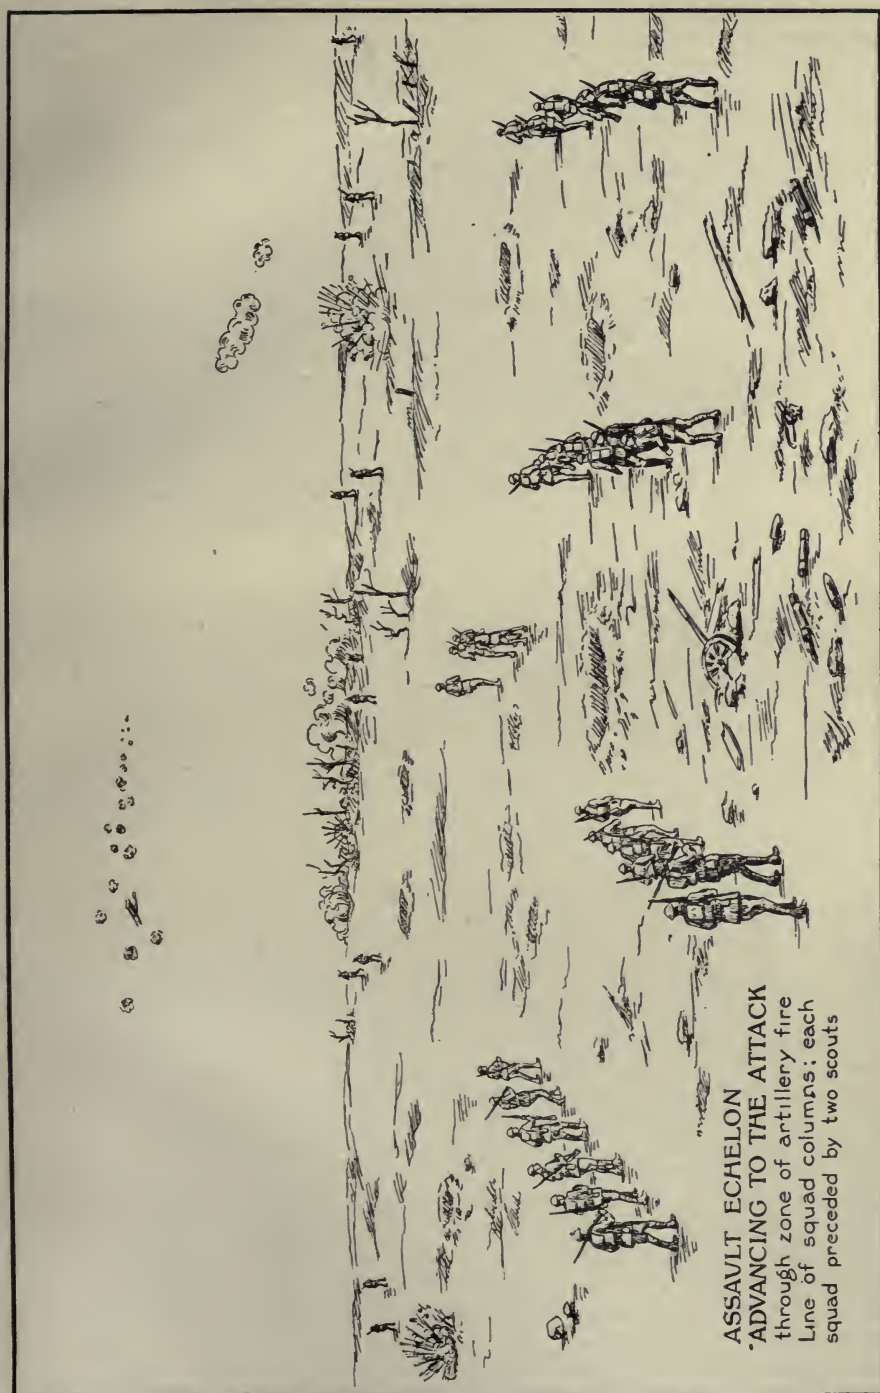 ASSAULT ECHELON
ADVANCING TO THE ATTACK
through zone of artillery fire
Line of squad columns; each
squad preceded by two scouts